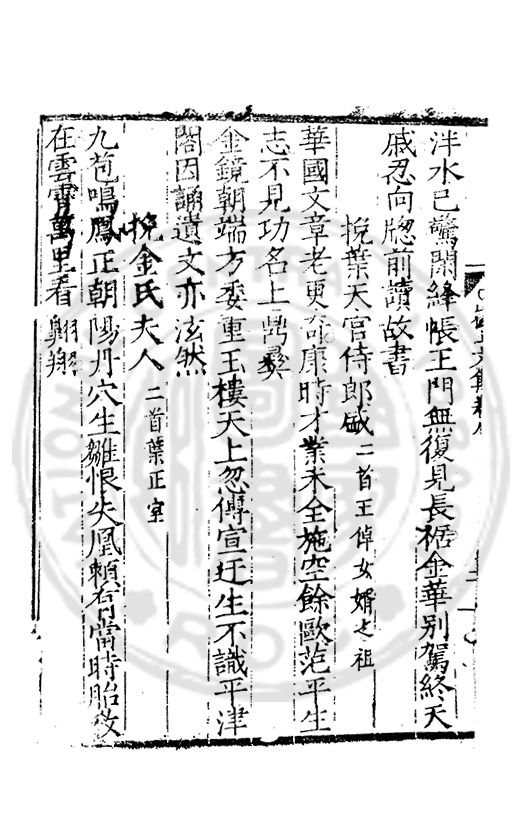 泮水已驚閑絳帳王門無復見長裾金華別駕終天
戚忍向牎前讀故書
挽葉天官侍郎敏二首王倬女婿之祖
華國文章老更奇康時才業未全施空餘歐范平生
志不見功名上鼎彝
金鏡朝端方委重玉樓天上忽傳宣迂生不識平津
閣因誦遺文亦泫然
挽金氏夫人二首葉正室
九苞鳴鳳正朝陽丹穴生雛恨失凰賴有當時胎教
在雲霄萬里看翺翔